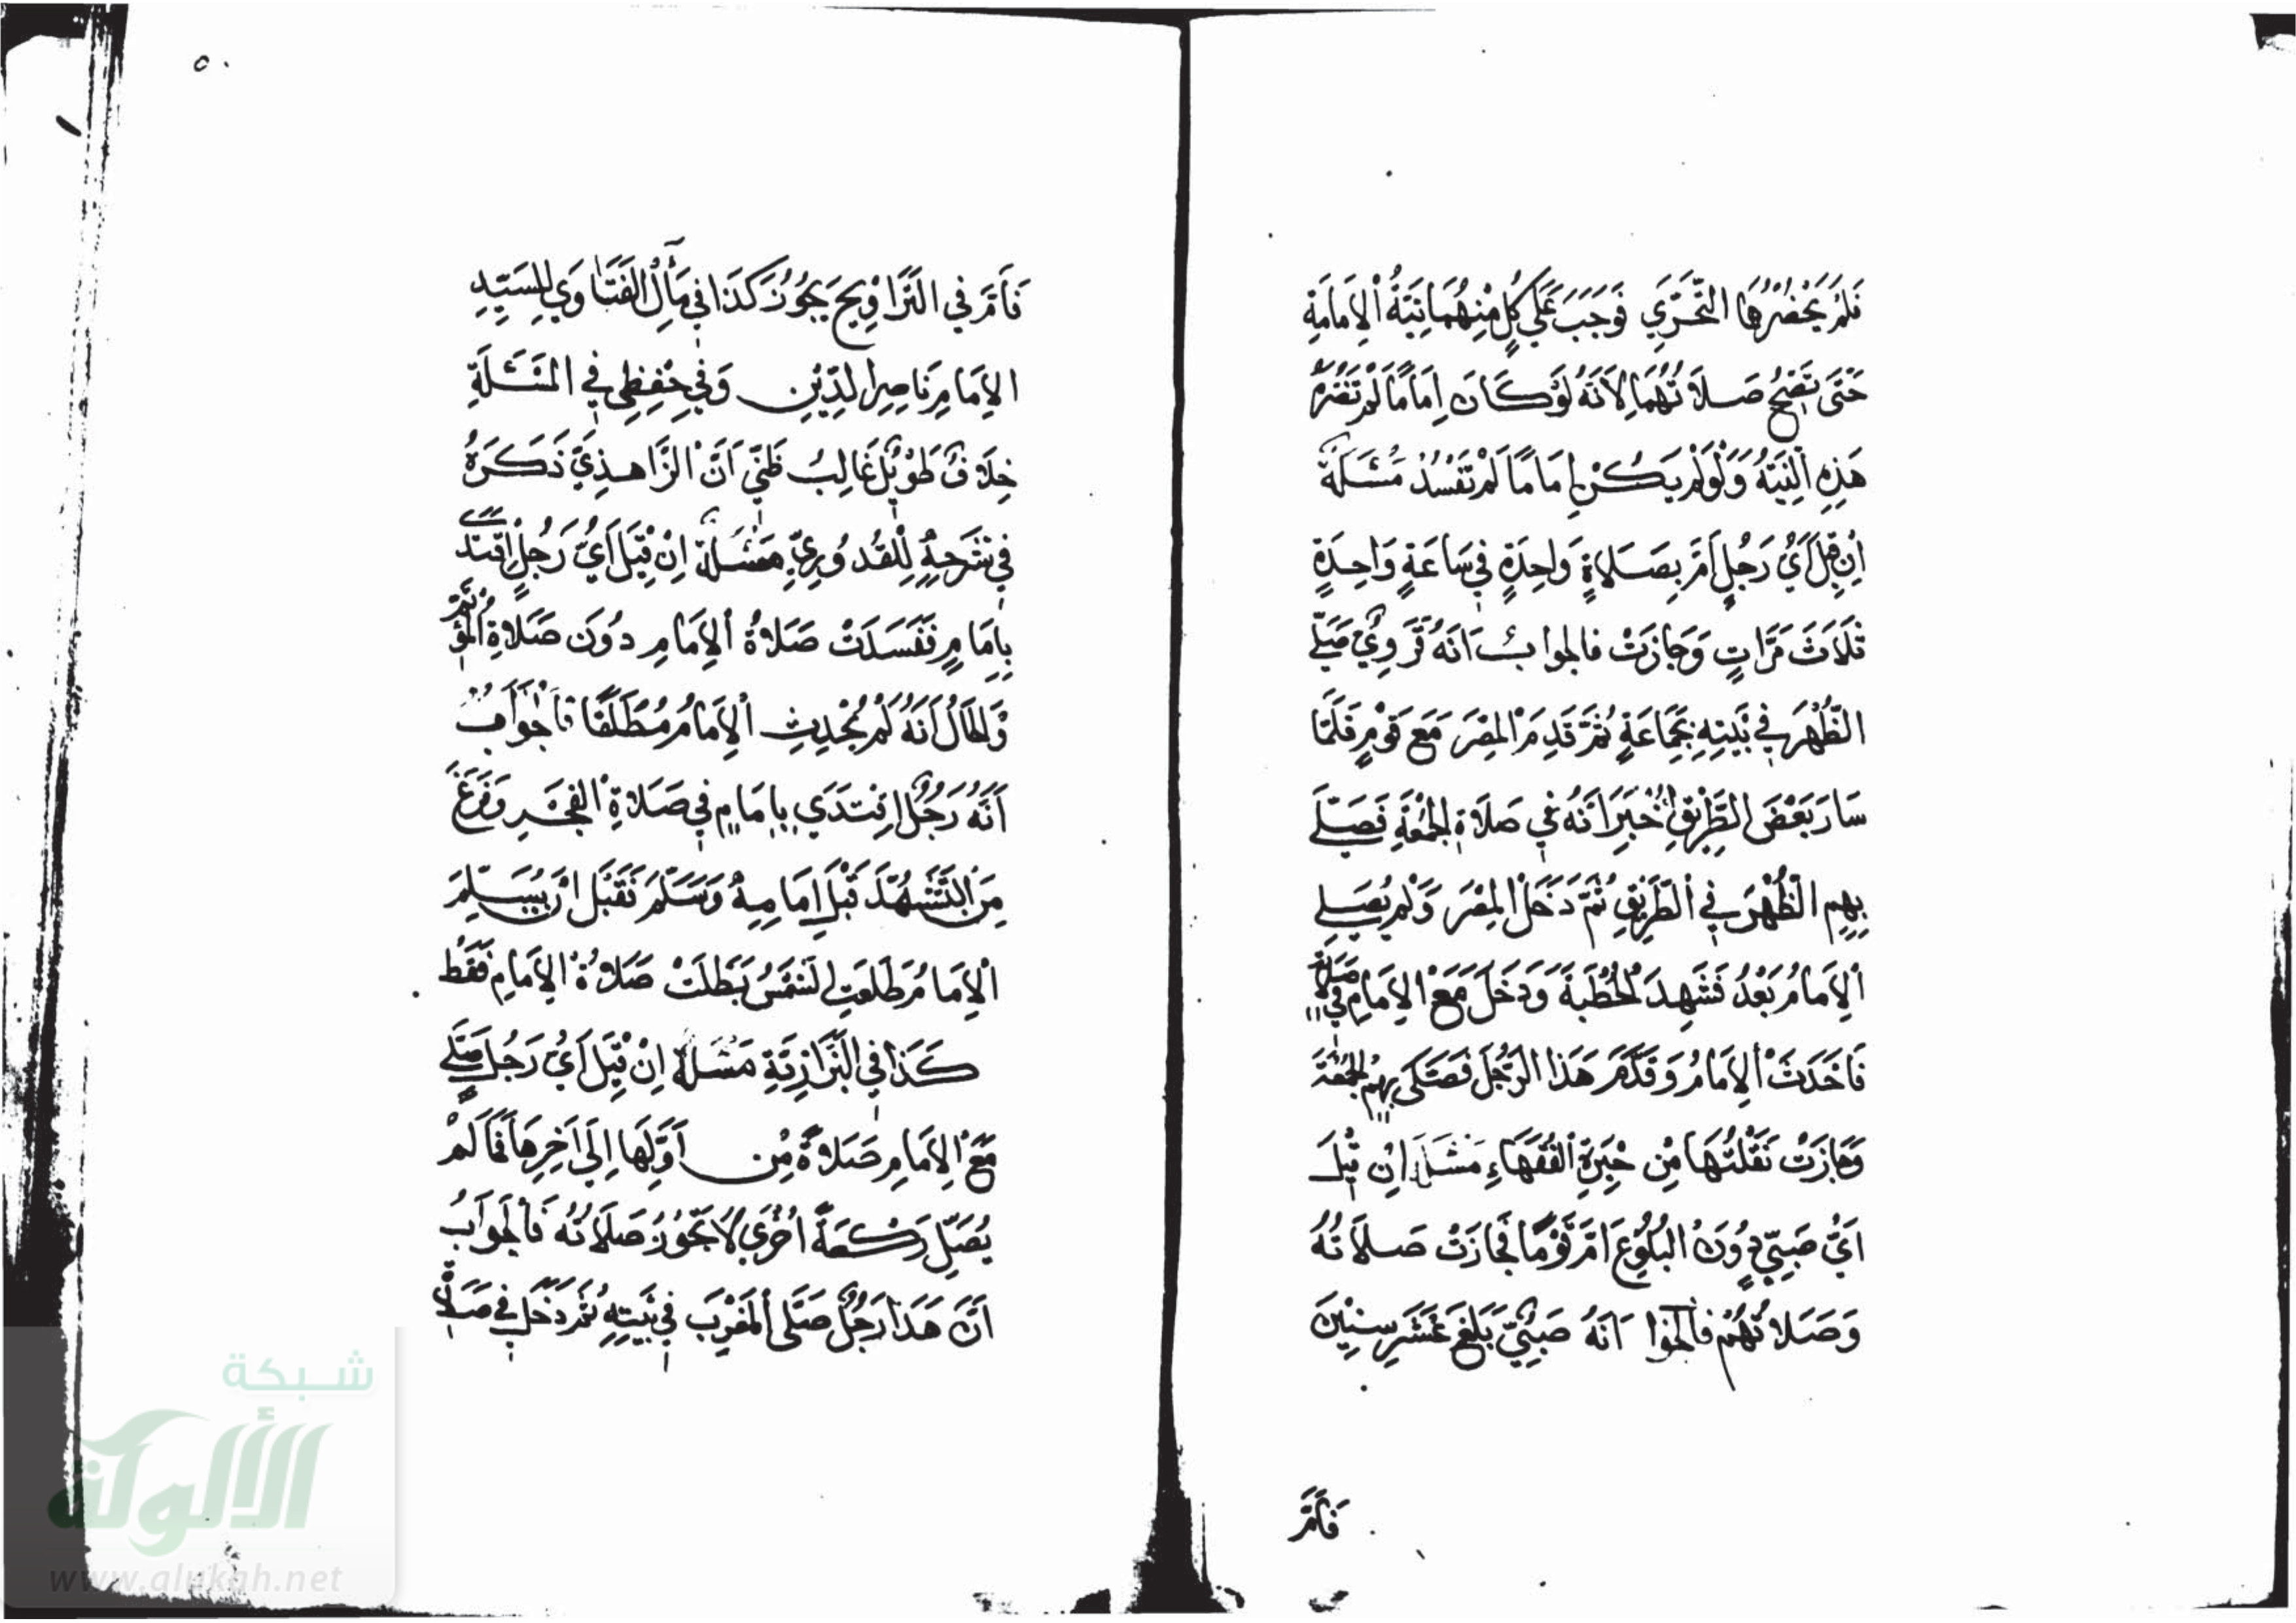 فَلَمْ يَحْضُرْهَا التَّحَرِّي فَوَجَبَ عَلَي كُلٍّ مِنْهُمَا نِيَّةُ الإِمَامَةِ
حَتَّى تَصِحُّ صَلاَتُهُمَا لِاَنَّهُ لَوْ كَانَ اِمَامًا لَمْ تَضُرَّهُ
هَذِهِ النِّيَّةُ وَلَوْ لَمْ يَكُنْ اِمَامًا لَمْ تَفْسُدْ مَسْئَلَةٌ
اِنْ قِيلَ اَيُّ رَجُلٍ اَمَّ بِصَلاَةٍ وَاحِدَةٍ فِي سَاعَةٍ وَاحِدَةٍ
ثَلاَثَ مَرَّاتٍ وَجَازَتْ فالجوابُ اَنَّهُ قَرَوِيٌّ صَلَّي
الظُّهْرَ فِي بَيْتِهِ بِجَمَاعَةٍ ثُمَّ قَدِمَ المِصْرَ مَعَ قَوْمٍ فَلَمَّا
سَارَ بَعْضَ الطَّرِيقِ اُخْبِرَ اَنَّهُ فِي صَلاَةِ الجُمْعَةِ فَصَلَّي
بِهِمِ الظُّهْرَ فِي الطَّرِيقِ ثُمَّ دَخَلَ المِصْرَ وَلَمْ يُصَلِي
الإِمَامُ بَعْدُ فَشَهِدَ الخُطْبَةَ وَدَخَلَ مَعَ الإِمَامِ فِي صَلاَتِهِ
فَاَحْدَثَ الإِمَامُ وَقَدَّمَ هَذَا الرَّجُلَ فَصَلَّى بِهِمُ الجُمْعَةَ
وَجَازَتْ نَقَلْتُهَا مِنْ حَيْرَةِ الفُقَهَاءِ مَسْئَلَة اِنْ قِيلَ
اَيُّ صَبِيٍّ دُونَ البُلُوغِ اَمَّ قَوْمًا فَجَازَتْ صَلاَتُهُ
وَصَلاَتُهُمْ فالجوا اَنَّهُ صَبِيٌّ بَلَغَ عَشَرَ سِنِيْنَ
فَاَمَّ
٥٠
فَاَمَّ فِي التَّرَاوِيحِ يَجُوزُ كَذَا فِي مَآلُ الفَتَاوَي لِلسَيِّدِ
الإِمَامِ نَاصِرِ الدِّيْنِ وَفِي حِفْظِي فِي المَسْئَلَةِ
خِلاَفٌ طَوِيْلٌ غَالِبُ ظَنِّي اَنَّ الزَّاهِدِيَّ ذَكَرَهُ
فِي شَرْحِهِ لِلْقُدُورِيِّ مَسْئَلَةٌ اِنْ قِيْلَ اَيُّ رَجُلٍ اِقْتَدَي
بِاِمَامٍ فَفَسَدَتْ صَلاَةُ الإِمَامِ دُونَ صَلاَةِ المُؤْتَمِّ
وَالحَالُ اَنَّهُ لَمْ يُحْدِثِ الإِمَامُ مُطْلَقًا فَالْجَوَابُ
اَنَّهُ رَجُلٌ اِقْتَدَي بِاِمَامٍ فِي صَلاَةِ الفَجْرِ وَفَرَغَ
مِنَ التَّشَهُّدِ قَبْلَ اِمَامِهِ وَسَلَّمَ فَقَبْلَ اَنْ يُسَلِّمَ
الإِمَامُ طَلَعَتِ الشَّمْسُ بَطَلَتْ صَلاَةُ الإِمَامِ فَقَطْ
كَذَا فِي البَزَّازِيَّةِ مَسْئَلَة اِنْ قِيْلَ اَيُّ رَجُلٍ صَلَّي
مَعَ الإِمَامِ صَلاَةً مِنْ اَوَّلِهَا اِلَي اَخِرِهَا فَمَا لَمْ
يُصَلِّ رَكْعَةً اُخْرَي لاَ تَجُوزُ صَلاَتُهُ فَالجَوَابُ
اَنَّ هَذَا رَجُلٌ صَلَّى المَغْرِبَ فِي بَيْتِهِ ثُمَّ دَخَلَ فِي صَلاَةِ
شبكة
الألوكة
www.alukah.net